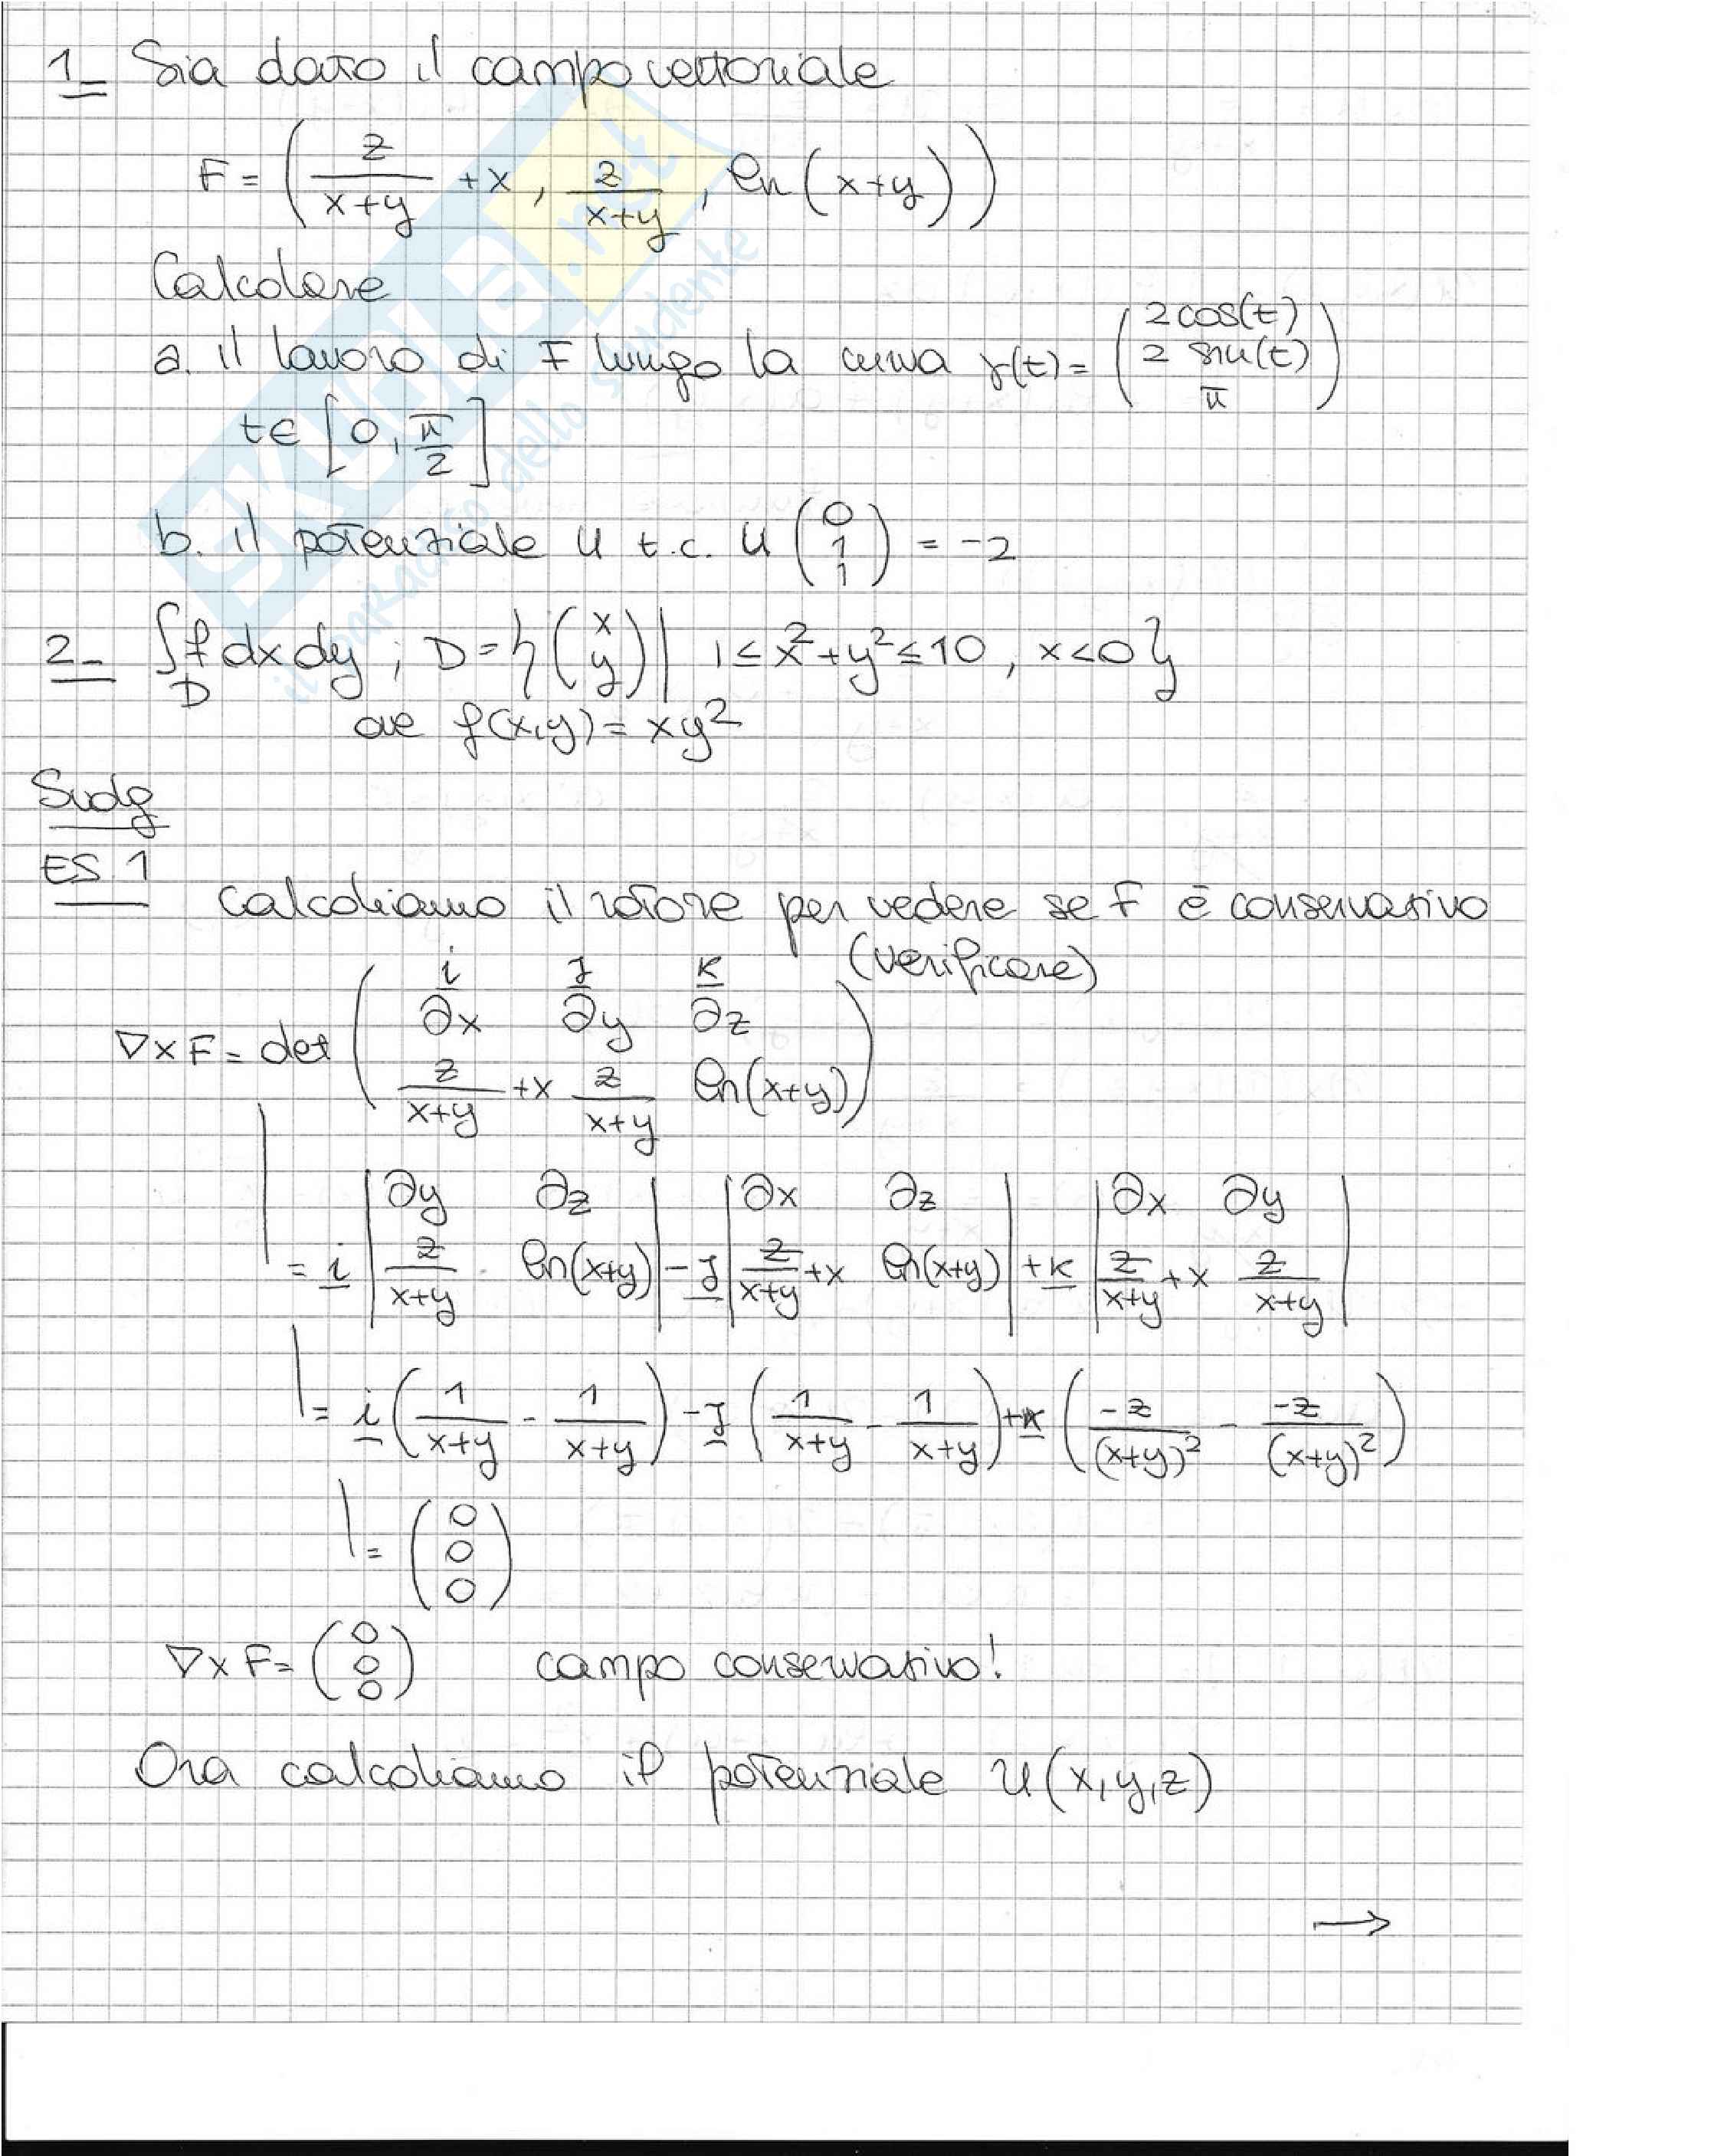 1_ Sia dato il campo vettoriale
F = ( z/(x+y) + x , z/(x+y) , ln(x+y) )
Calcolare
a. il lavoro di F lungo la curva γ(t) = ( 2cos(t) 2 sin(t) π )
t∈ [ 0, π/2 ]
b. il potenziale U t.c. U ( 0 1 1 ) = -2
2_ ∫_D f dx dy ; D = { ( x y ) | 1 ≤ x² + y² ≤ 10 , x<0 }
ove f(x,y) = xy²
Svolg
ES 1
Calcoliamo il rotore per vedere se F è conservativo
(verificare)
∇×F = det ( i J K ∂x ∂y ∂z z/(x+y) + x z/(x+y) ln(x+y) )
= i | ∂y ∂z z/(x+y) ln(x+y) | - J | ∂x ∂z z/(x+y) + x ln(x+y) | + K | ∂x ∂y z/(x+y) + x z/(x+y) |
= i ( 1/(x+y) - 1/(x+y) ) - J ( 1/(x+y) - 1/(x+y) ) + K ( -z/(x+y)² - -z/(x+y)² )
= ( 0 0 0 )
∇×F = ( 0 0 0 ) campo conservativo!
Ora calcoliamo il potenziale U(x,y,z)
→
SKUOLA.net
il paradiso dello studente